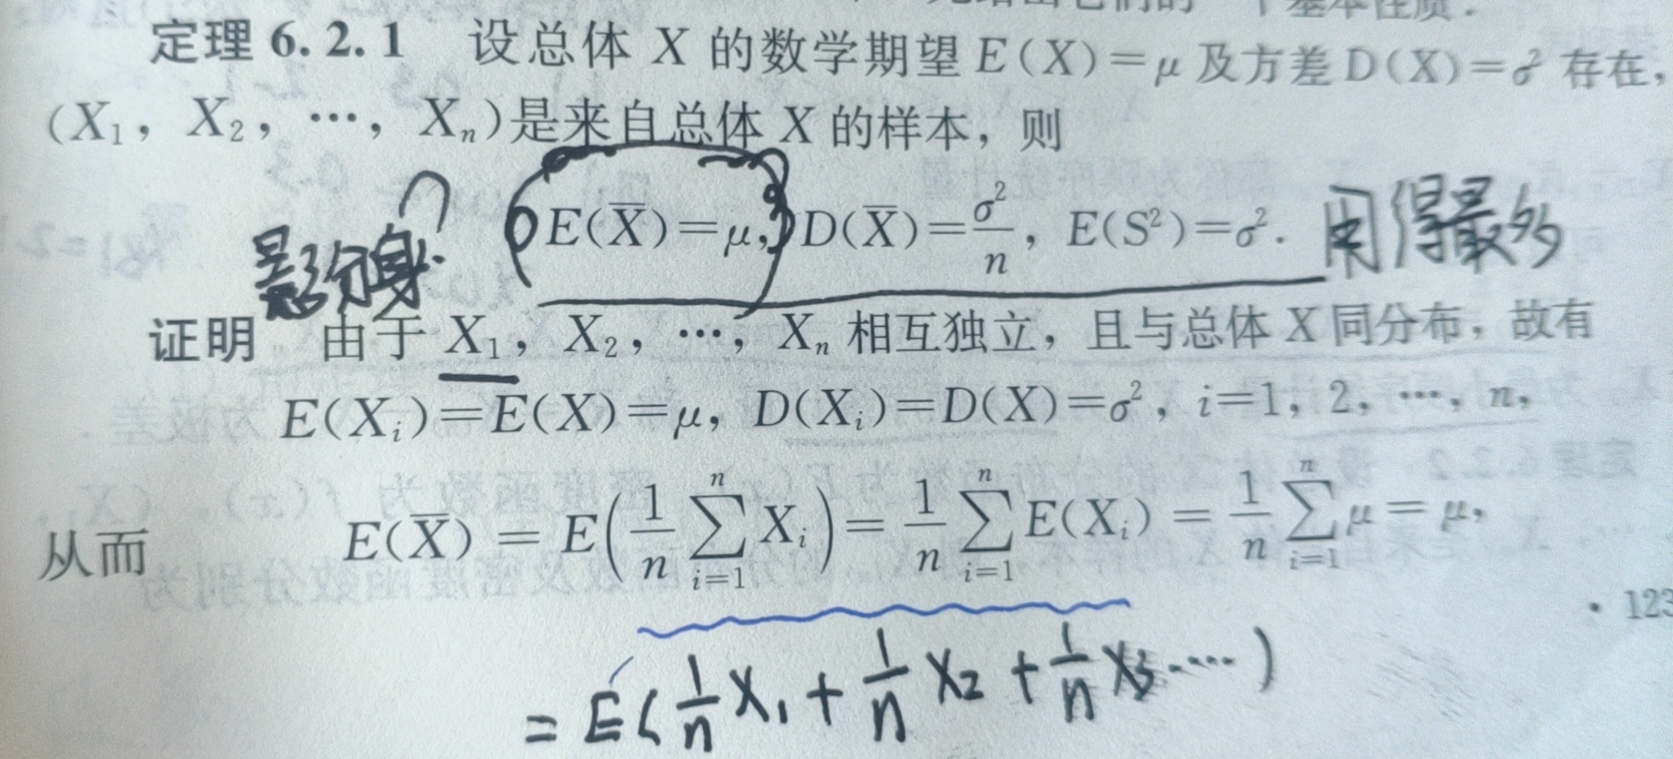 定理 6.2.1 设总体 X 的数学期望 E(X)=μ 及方差 D(X)=σ² 存在,
(X₁, X₂, ⋯, Xₙ)是来自总体 X 的样本, 则
E(X̅)=μ, D(X̅)=σ²/n, E(S²)=σ². 用得最多
影分身
证明 由于 X₁, X₂, ⋯, Xₙ 相互独立, 且与总体 X 同分布, 故有
E(Xᵢ)=E(X)=μ, D(Xᵢ)=D(X)=σ², i=1, 2, ⋯, n,
从而 E(X̅) = E(1/n ∑ᵢ₌₁ⁿ Xᵢ) = 1/n ∑ᵢ₌₁ⁿ E(Xᵢ) = 1/n ∑ᵢ₌₁ⁿ μ = μ,
· 123
= E(1/n X₁ + 1/n X₂ + 1/n X₃ ⋯⋯)